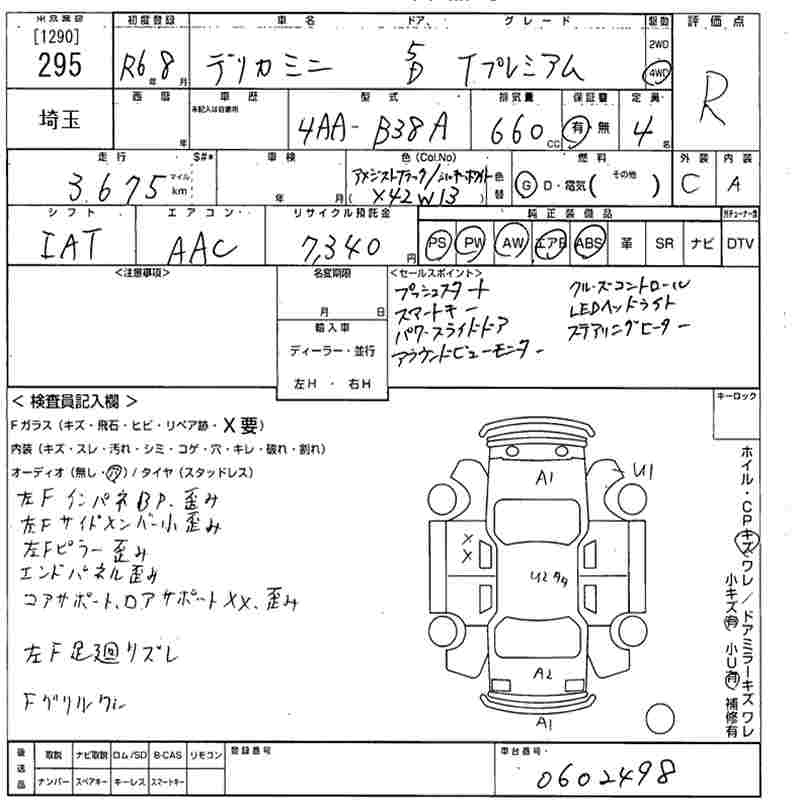 [1290]
295
埼玉
初度登録
R6年 8月
車名
デリカミニ
ドア、
5D
グレード
Tプレミアム
駆動
2WD
4WD
評価点
R
西暦
年
車歴
未記入は自家用
型式
4AA-B38A
排気量
660 CC
保証書
有・無
定員
4名
走行
3,675
マイル
km
$#*
車検
年 月
色(Col.No)
アメジストブラック/
(X42W13)
色替
燃料
G D・電気(その他)
外装
C
内装
A
シフト
IAT
エアコン
AAC
リサイクル預託金
7,340円
純正装備品
PS PW AW エアB ABS 革 SR ナビ
DTV
<注意事項>
名変期限
月 日
輸入車
ディーラー・並行
左H・右H
<セールスポイント>
プッシュスタート
スマートキー
パワースライドドア
アラウンドビューモニター
クルーズコントロール
LEDヘッドライト
ステアリングヒーター
<検査員記入欄>
Fガラス(キズ・飛石・ヒビ・リペア跡・X要)
内装(キズ・スレ・汚れ・シミ・コゲ・穴・キレ・破れ・割れ)
オーディオ(無し・穴)/タイヤ(スタッドレス)
左FインパネBP、歪み
左Fサイドメンバー小歪み
左Fピラー歪み
エンドパネル歪み
コアサポート、ロアサポートXX、歪み
左F足廻リズレ
Fグリルワレ
キーロック
A1
U1
X
X
U2
A2
A1
ホイル・CPキズワレ/ドアミラーキズワレ
小キズ有 小U有 補修有
後送品
取説 ナビ取説 ロム/SD B-CAS リモコン
ナンバー スペアキー キーレス スマートキー
登録番号
車台番号
0602498